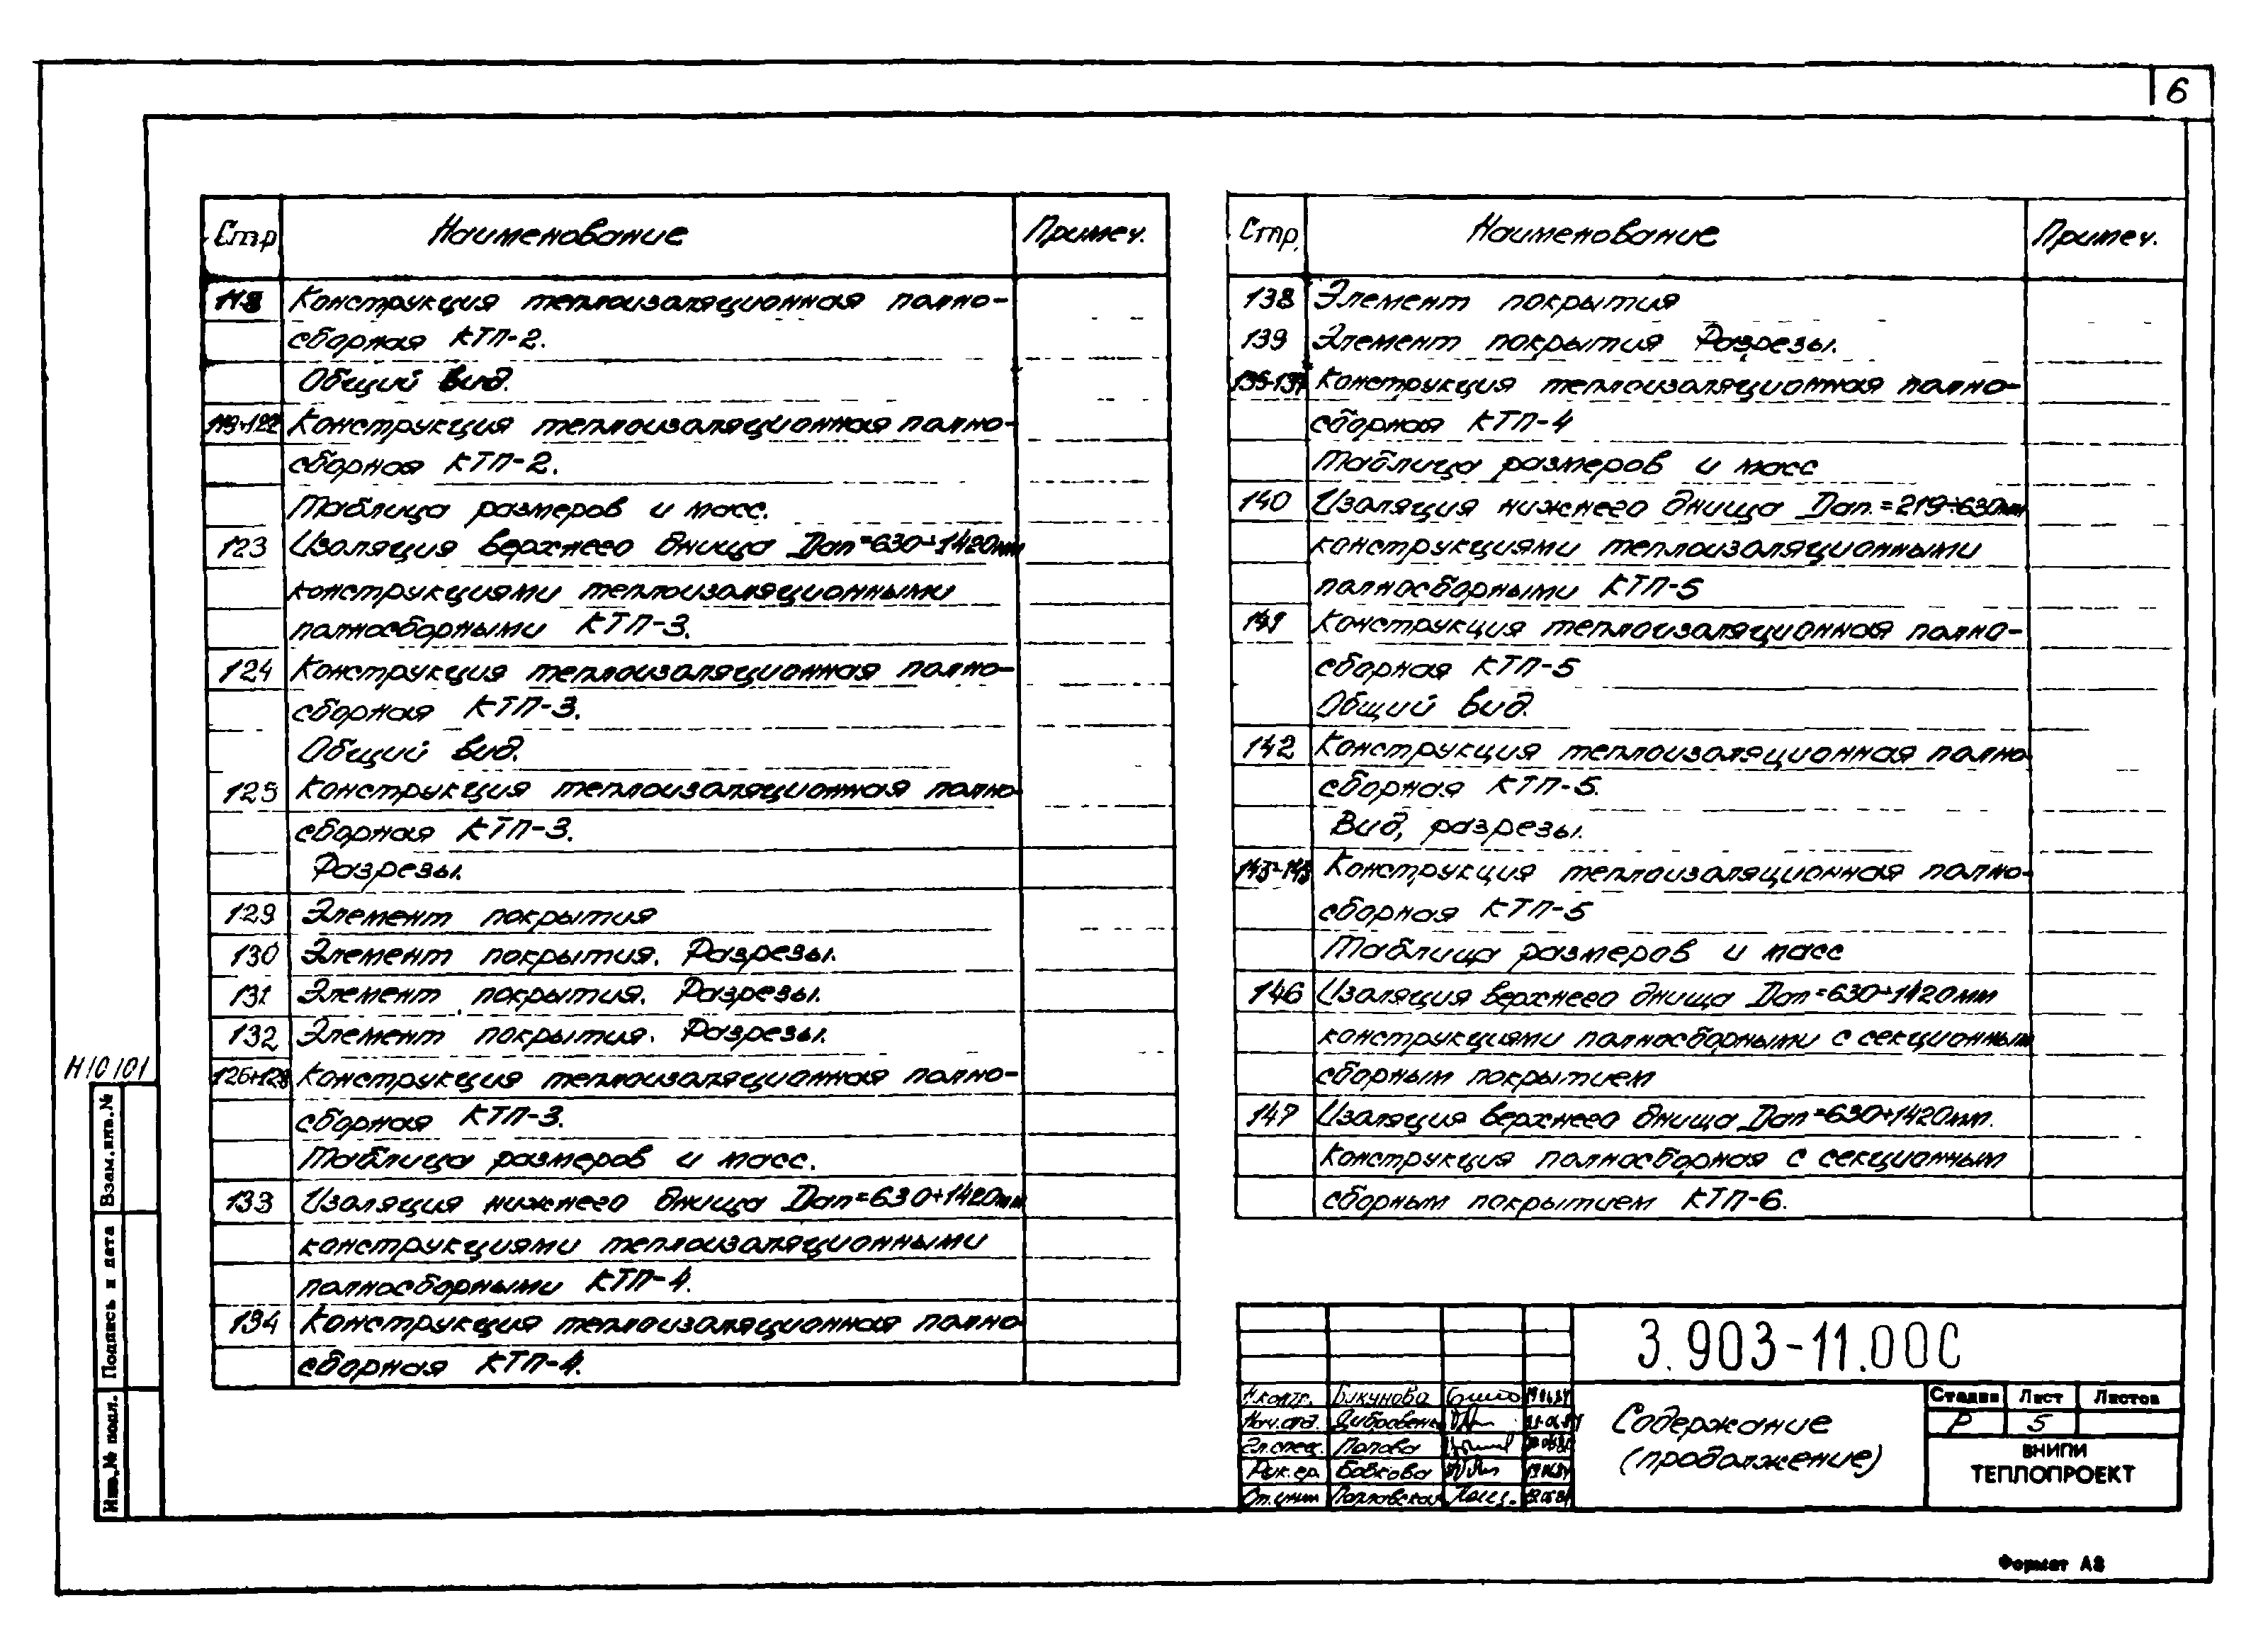 6
Стр Наименование Примеч.
118 Конструкция теплоизоляционная полно-
сборная КТП-2.
Общий вид.
119÷122 Конструкция теплоизоляционная полно-
сборная КТП-2.
Таблица размеров и масс.
123 Изоляция верхнего днища Dап=630÷1420мм
конструкциями теплоизоляционными
полносборными КТП-3.
124 Конструкция теплоизоляционная полно-
сборная КТП-3.
Общий вид.
125 Конструкция теплоизоляционная полно-
сборная КТП-3.
Разрезы.
129 Элемент покрытия
130 Элемент покрытия. Разрезы.
131 Элемент покрытия. Разрезы.
132 Элемент покрытия. Разрезы.
126÷128 Конструкция теплоизоляционная полно-
сборная КТП-3.
Таблица размеров и масс.
133 Изоляция нижнего днища Dап=630÷1420мм
конструкциями теплоизоляционными
полносборными КТП-4.
134 Конструкция теплоизоляционная полно
сборная КТП-4.
Стр. Наименование Примеч.
138 Элемент покрытия
139 Элемент покрытия Разрезы.
135-137 Конструкция теплоизоляционная полно-
сборная КТП-4
Таблица размеров и масс
140 Изоляция нижнего днища Dап.=219÷630мм
конструкциями теплоизоляционными
полносборными КТП-5
141 Конструкция теплоизоляционная полно-
сборная КТП-5
Общий вид.
142 Конструкция теплоизоляционная полно
сборная КТП-5.
Вид, разрезы.
143-145 Конструкция теплоизоляционная полно-
сборная КТП-5
Таблица размеров и масс
146 Изоляция верхнего днища Dап=630÷1420мм
конструкциями полносборными с секционным
сборным покрытием
147 Изоляция верхнего днища Dап=630÷1420мм.
Конструкция полносборная с секционным
сборным покрытием КТП-6.
Н10101
Взам.инв.№
Подпись и дата
Инв.№ подл.
3.903-11.00С
Н.контр. Бикунова
Нач.отд.
Гл.спец. Попова
Рук.гр. Бовкова
Ст.инж
Содержание
(продолжение)
Стадия Лист Листов
Р 5
ВНИПИ
ТЕПЛОПРОЕКТ
Формат А3